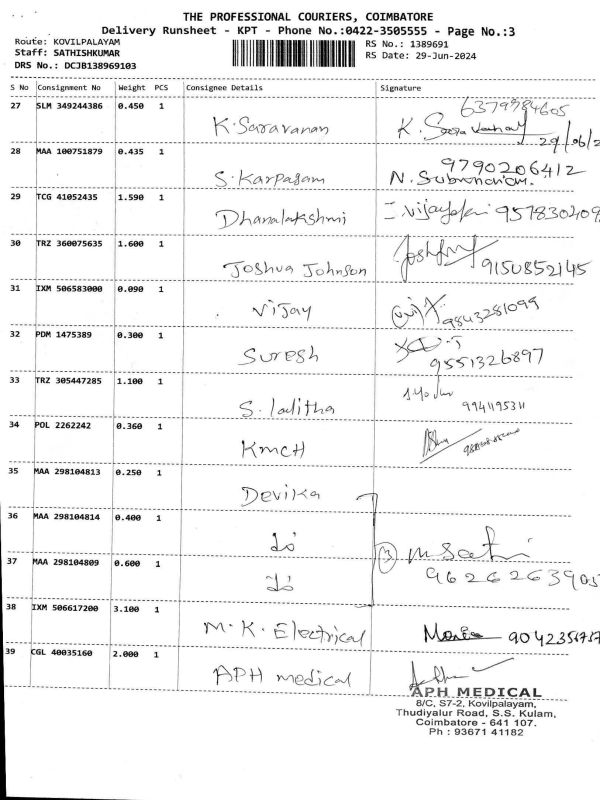 THE PROFESSIONAL COURIERS, COIMBATORE
Delivery Runsheet - KPT - Phone No.:0422-3505555 - Page No.:3
Route: KOVILPALAYAM
Staff: SATHISHKUMAR
DRS No.: DCJB138969103
RS No.: 1389691
RS Date: 29-Jun-2024
S No Consignment No Weight PCS Consignee Details Signature
27 SLM 349244386 0.450 1 K. Saravanan 6379784605
29/06/2
28 MAA 100751879 0.435 1 S. Karpagam 9790206412
29 TCG 41052435 1.590 1 Dhanalakshmi 957830209
30 TRZ 360075635 1.600 1 Joshua Johnson 9150852145
31 IXM 506583000 0.090 1 Vijay 9843281099
32 PDM 1475389 0.300 1 Suresh 9551326897
33 TRZ 305447285 1.100 1 S. lalitha 9941195311
34 POL 2262242 0.360 1 KMCH
35 MAA 298104813 0.250 1 Devika
36 MAA 298104814 0.400 1
37 MAA 298104809 0.600 1 3 9626263905
38 IXM 506617200 3.100 1 M. K. Electrical
39 CGL 40035160 2.000 1 APH medical
APH MEDICAL
8/C, S7-2, Kovilpalayam,
Thudiyalur Road, S.S. Kulam,
Coimbatore - 641 107.
Ph : 93671 41182